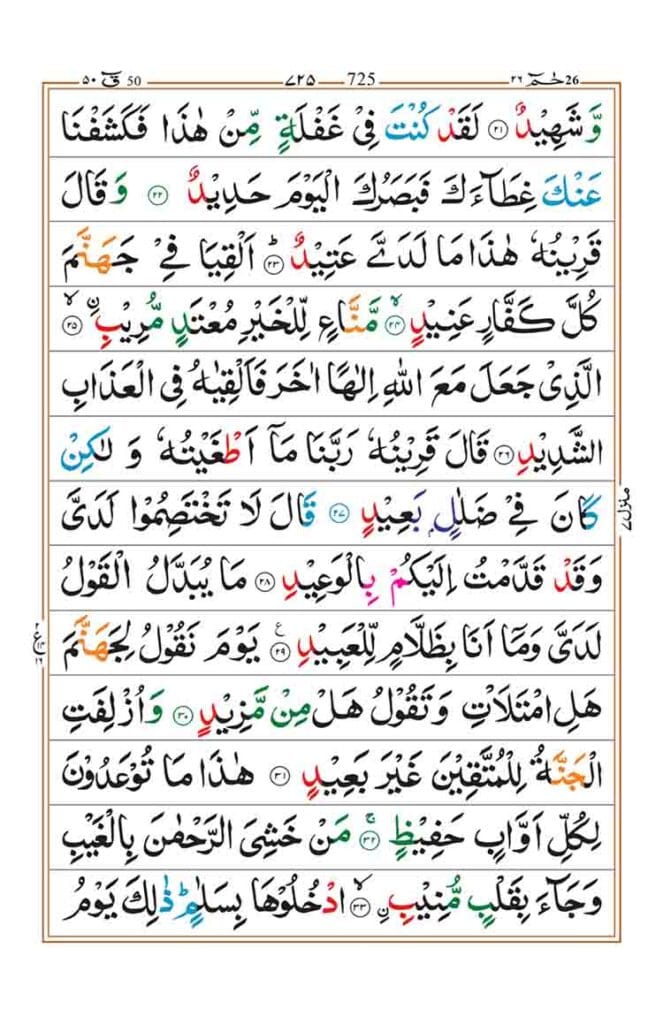 ٥٠ قٓ 50 ٧٢٥ 725 ٢٦ حٰمٓ 26
وَّ شَهِيْدٌ ۟﴿۲۱﴾ لَقَدْ كُنْتَ فِيْ غَفْلَةٍ مِّنْ هٰذَا فَكَشَفْنَا
عَنْكَ غِطَآءَكَ فَبَصَرُكَ الْيَوْمَ حَدِيْدٌ ﴿۲۲﴾ وَ قَالَ
قَرِيْنُهٗ هٰذَا مَا لَدَيَّ عَتِيْدٌ ؕ﴿۲۳﴾ اَلْقِيَا فِيْ جَهَنَّمَ
كُلَّ كَفَّارٍ عَنِيْدٍ ۙ﴿۲۴﴾ مَّنَّاعٍ لِّلْخَيْرِ مُعْتَدٍ مُّرِيْبِ ۣۙ﴿۲۵﴾
الَّذِيْ جَعَلَ مَعَ اللّٰهِ اِلٰهًا اٰخَرَ فَاَلْقِيٰهُ فِي الْعَذَابِ
الشَّدِيْدِ ﴿۲۶﴾ قَالَ قَرِيْنُهٗ رَبَّنَا مَآ اَطْغَيْتُهٗ وَ لٰكِنْ
كَانَ فِيْ ضَلٰلٍۭ بَعِيْدٍ ﴿۲۷﴾ قَالَ لَا تَخْتَصِمُوْا لَدَيَّ
وَ قَدْ قَدَّمْتُ اِلَيْكُمْ بِالْوَعِيْدِ ﴿۲۸﴾ مَا يُبَدَّلُ الْقَوْلُ
لَدَيَّ وَمَآ اَنَا بِظَلَّامٍ لِّلْعَبِيْدِ ﴿۲۹﴾ ع يَوْمَ نَقُوْلُ لِجَهَنَّمَ
هَلِ امْتَلَاْتِ وَ تَقُوْلُ هَلْ مِنْ مَّزِيْدٍ ﴿۳۰﴾ وَ اُزْلِفَتِ
الْجَنَّةُ لِلْمُتَّقِيْنَ غَيْرَ بَعِيْدٍ ﴿۳۱﴾ هٰذَا مَا تُوْعَدُوْنَ
لِكُلِّ اَوَّابٍ حَفِيْظٍ ۚ﴿۳۲﴾ مَنْ خَشِيَ الرَّحْمٰنَ بِالْغَيْبِ
وَ جَآءَ بِقَلْبٍ مُّنِيْبِ ۣۙ﴿۳۳﴾ ادْخُلُوْهَا بِسَلٰمٍ ؕ ذٰلِكَ يَوْمُ
منزل ٧